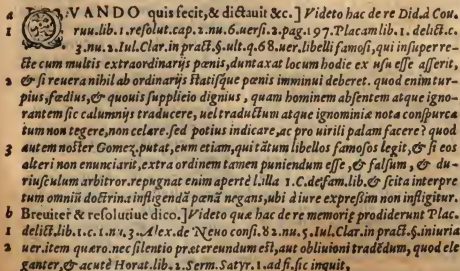 a QVANDO quis fecit, & dictauit &c.] Videto hac de re Did. à Cou.
1 ruu. lib. 1. resolut. cap. 2. nu. 6. uersi. 2. pag. 197. Placam lib. 1. delict. c.
3. nu. 2. Iul. Clar. in pract. §. ult. q. 68. uer. libelli famosi, qui insuper re-
cte cum multis extraordinarijs pœnis, duntaxat locum hodie ex usu esse asserit,
2 & si reuera nihil ab ordinarijs statisque pœnis imminui deberet. quod enim tur-
pius, fœdius, & quouis supplicio dignius, quam hominem absentem atque igno-
rantem sic calumnijs traducere, uel traductum atque ignominiæ nota conspurca
tum non tegere, non celare. sed potius indicare, ac pro uirili palam facere? quod
3 autem noster Gomez. putat, eum etiam, qui tātum libellos famosos legit, & si eos
alteri non enunciarit, extra ordinem tamen puniendum esse, & falsum, & du-
riusculum arbitror. repugnat enim apertè l. illa 1. C. de fam. lib. & scita interpre
tum omniū doctrina infligendā pœnā negans, ubi à iure expressim non infligitur.
b Breuiter & resolutiue dico.] Videto quæ hac de re memorię prodiderunt Plac.
1 delict. lib. 1. c. 1. nu. 3. Alex. de Neuo consi. 82. nu. 5. Iul. Clar. in pract. §. iniuria
2 uer. item quæro. nec silentio prætereundum est, aut obliuioni tradēdum, quod ele
ganter, & acutè Horat. lib. 2. Serm. Satyr. 1. ad fi. sic inquit,